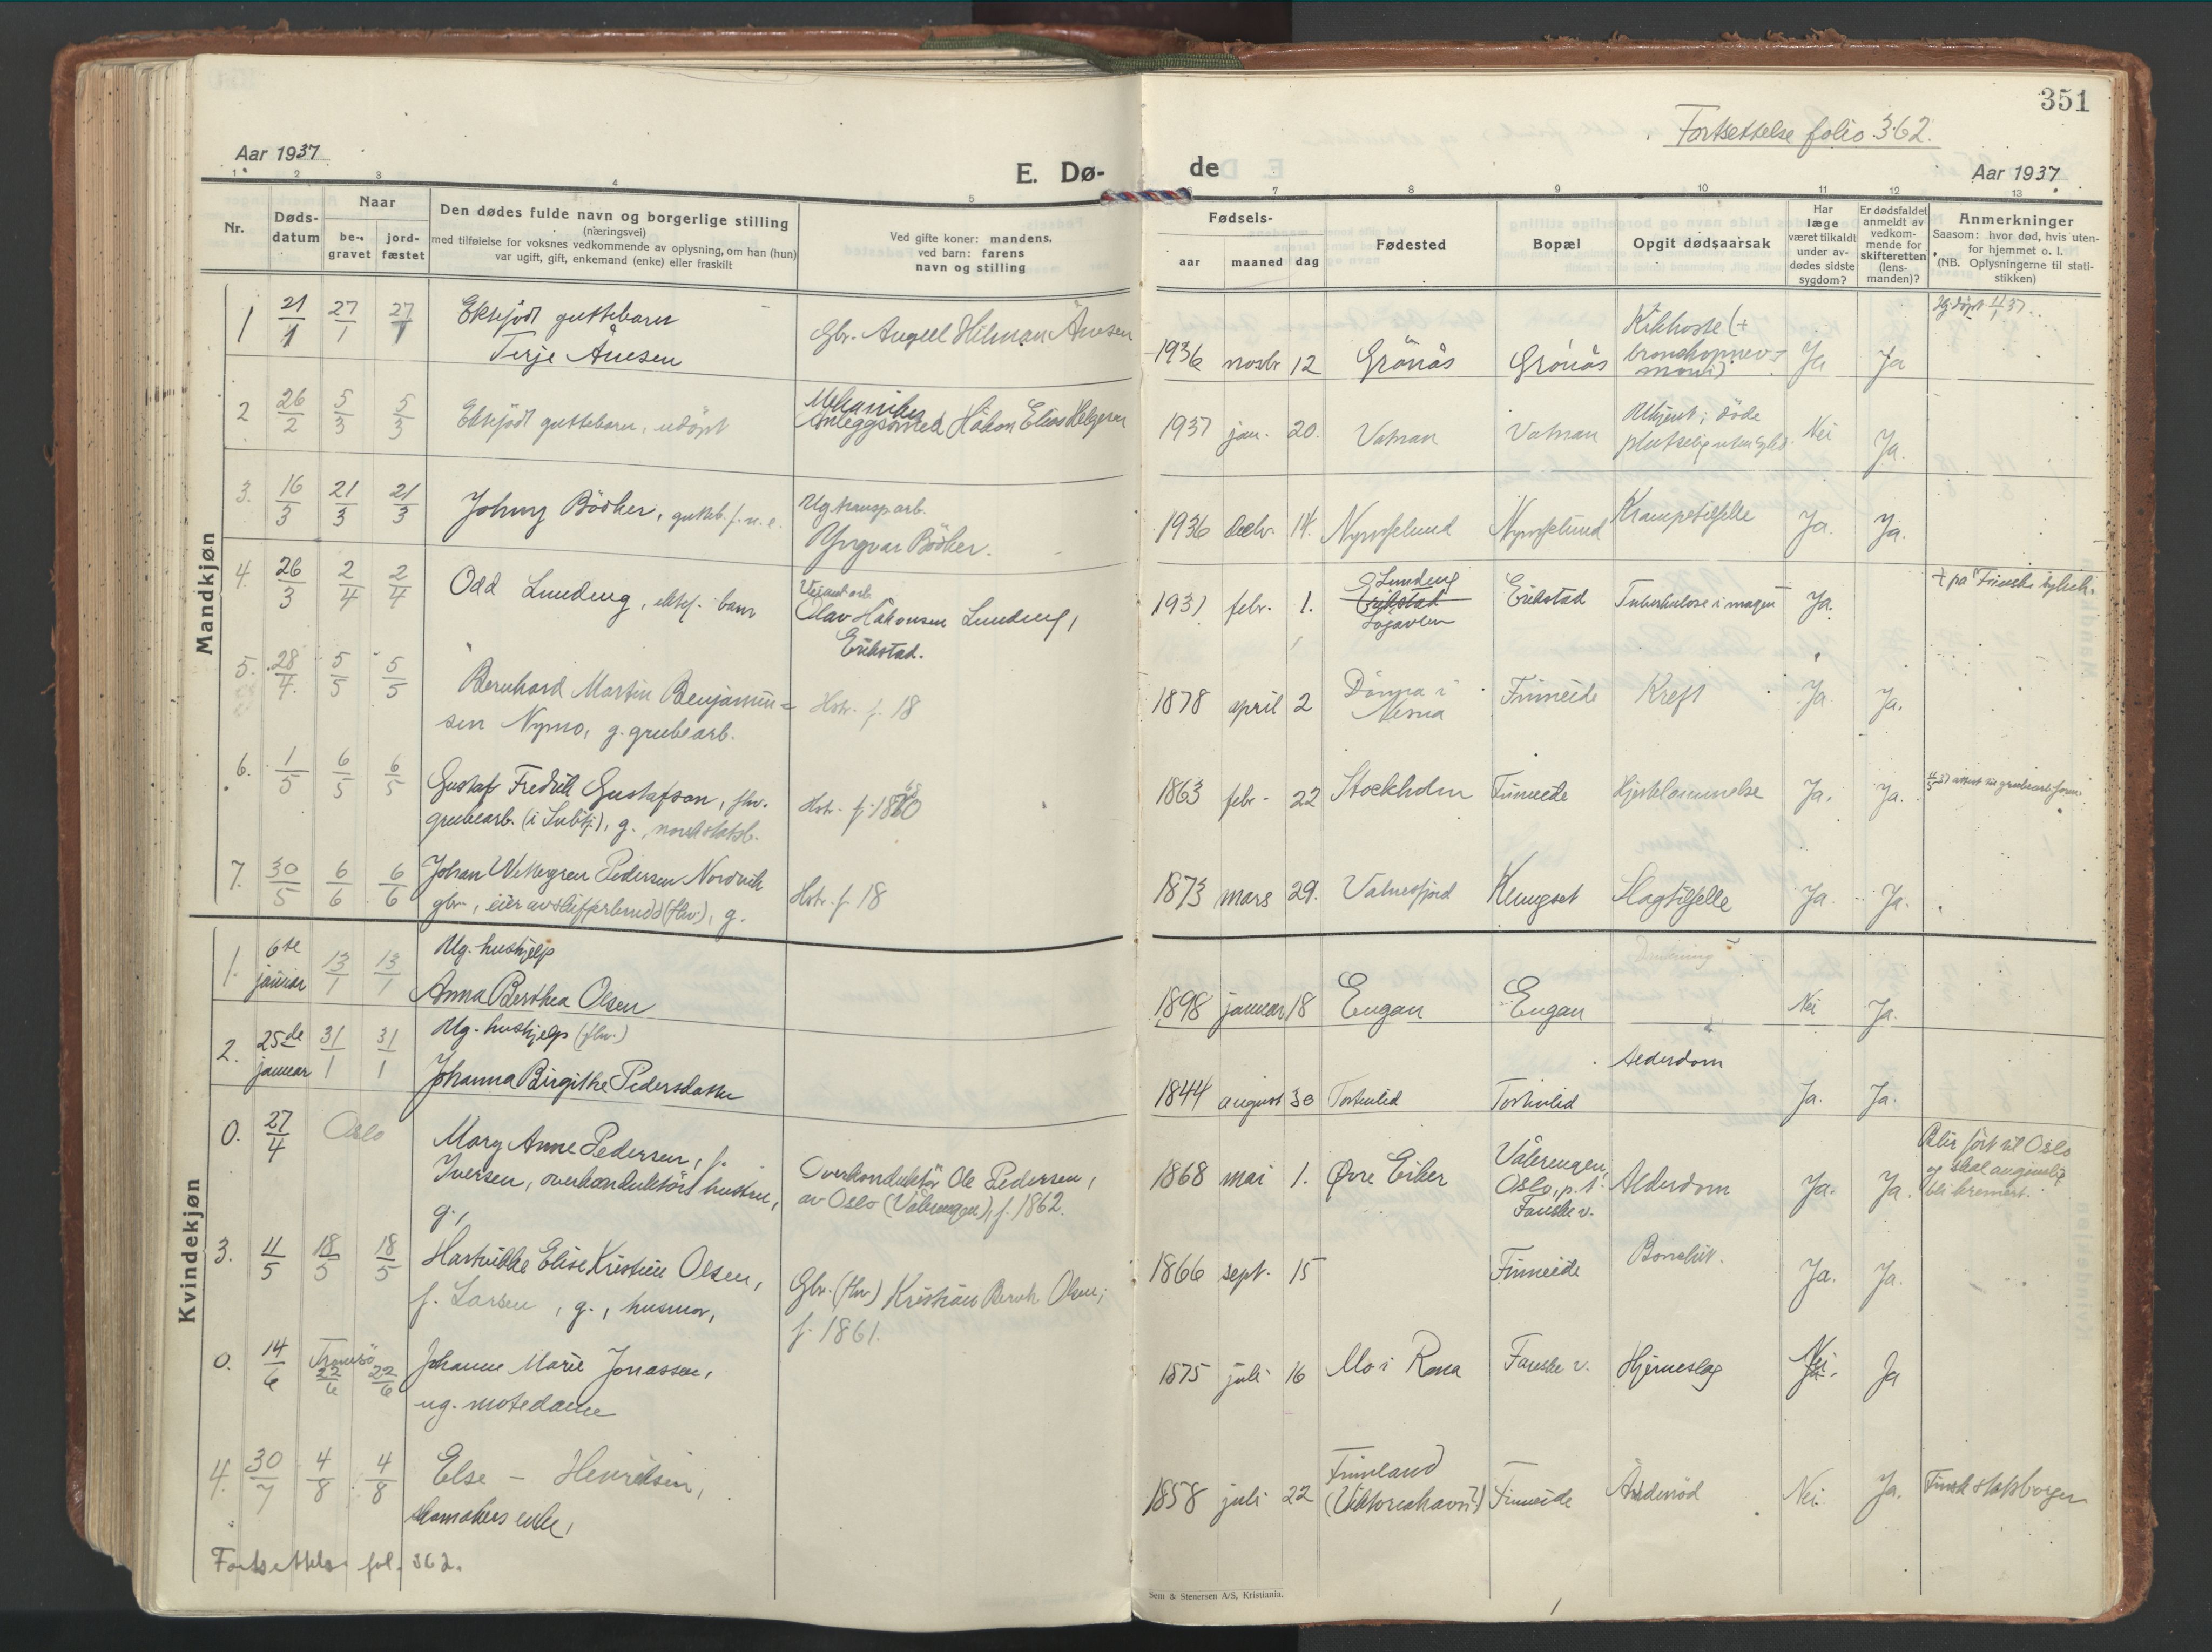 351
Fortsettelse folio 362.
Aar 1937
E. Dø-
de
Aar 1937
1 2 3 4 5 6 7 8 9 10 11 12 13
Nr.
Døds-
datum
Naar
be-
gravet
jord-
fæstet
Den dødes fulde navn og borgerlige stilling
(næringsvei)
med tilføielse for voksnes vedkommende av oplysning, om han (hun)
var ugift, gift, enkemand (enke) eller fraskilt
Ved gifte koner: mandens,
ved barn: farens
navn og stilling
Fødsels-
aar maaned dag
Fødested
Bopæl
Opgit dødsaarsak
Har
læge
været tilkaldt
under av-
dødes sidste
sygdom?
Er dødsfaldet
anmeldt av
vedkom-
mende for
skifteretten
(lens-
manden)?
Anmerkninger
Saasom: hvor død, hvis uten-
for hjemmet o. l.
(NB. Oplysningerne til stati-
stikken)
Mandkjøn
1 21/1 27/1 27/1 Ektefødt guttebarn
Terje Ånesen
Gbr. Hilmar Ånesen
1936 novbr 12 Grönås Grönås Kikhoste (+
bronchopnev-
moni) Ja Ja
Hj.døpt 11/1 37.
2 26/2 5/3 5/3 Ektefödt guttebarn, udöpt
Mekaniker
Anleggsarbeid Håkon Elias Helgesen
1937 jan. 20. Vatnan Vatnan Ukjent; döde
plutselig uten Nei Ja.
3. 16/3 21/3 21/3 Johny Bödker, gutteb. f. u. e.
Ug. transp.arb.
Yngvar Bödker.
1936 decbr. 14. Nyrnslund Nyrnslund Krampetilfelle Ja. Ja.
4. 26/3 2/4 2/4 Odd Lundeng, ektef. barn
Olav Håkonsen Lundeng,
Erikstad.
1931 febr. 1. Lundeng
Erikstad
Sagavlen
Erikstad Tuberkulose i magen Ja.
+ på Fauske sykeh.
5. 28/4. 5/5 5/5 Bernhard Martin Benjamin=
sen Nymo, g. grubearb.
Hstr. f. 18
1878 april 2 Dönna i
Nesna
Finneide Kreft Ja. Ja.
6. 1/5 6/5 6/5 Gustaf Fredrik Gustafson, fhv.
grubearb. (i Sulitj.), g., norsk statsb.
Hstr. f. 18
1863 febr. 22 Stockholm Finneide Hjertelammelse Ja. Ja.
7. 30/5 6/6 6/6 Johan Wettergren Pedersen Nordvik
gbr., eier av (fhv.), g.
Hstr. f. 18
1873 mars 29. Valnesfjord Klungset Slagtilfelle Ja. Ja.
Kvindekjøn
1. 6te
januar 13/1 13/1 Ug. hushjelp
Anna Berthea Olsen
1898 januar 18 Engan Engan Drukning Nei Ja.
2. 25de
januar 31/1 31/1 Ug. hushjelp (fhv.)
Johanna Birgithe Pedersdatter
1844 august 30 Torkulid Torkulid Alderdom Ja. Ja.
0. 27/4 Oslo Mary Anne Pedersen, f.
Iversen, overkonduktörs hustru,
g.,
Overkonduktör Ole Pedersen,
av Oslo (Vålerengen), f. 1862.
1868 mai 1. Øvre Eiker Vålerengen,
Oslo, p. t.
Fauske v.
Alderdom Ja. Ja.
Blir fört til Oslo
og skal angivelig
bli kremert.
3. 11/5 18/5 18/5 Hartvikke Elise Kristine Olsen,
f. Larsen, g., husmor,
Gbr. (fhv.) Kristian Bernh. Olsen,
f. 1861.
1866 sept. 15 Finneide Bronchit. Ja. Ja.
0. 14/6 Tromsö
22/6 22/6 Johanne Marie Jonassen,
ug. motedame
1875 juli 16 Mo i Rana Fauske v. Hjerneslag Nei
Ja. Ja
4. 30/7 4/8 4/8 Else – Henriksen,
skomakers enke,
1858 juli 22 Finnland
(Viktoriahavn?) Finneide Åndenöd Nei. Ja. Finsk statsborger
Fortsettelse fol. 362.
Sem & Stenersen A/S, Kristiania.